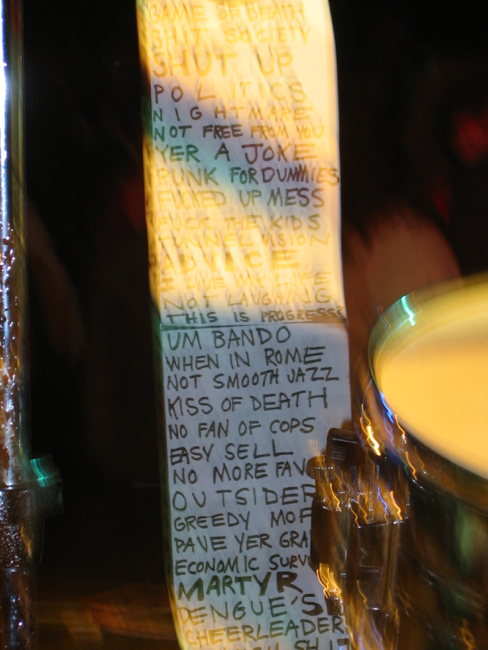 GAME OF DEATH
SHIT SOCIETY
SHUT UP
POLITICS
NIGHTMARE
NOT FREE FROM YOU
YER A JOKE
PUNK FOR DUMMIES
FUCKED UP MESS
FUCK THE KIDS
TUNNEL VISION
ADVICE
I LIVE MY LIFE
NOT LAUGHING
THIS IS PROGRESS
UM BANDO
WHEN IN ROME
NOT SMOOTH JAZZ
KISS OF DEATH
NO FAN OF COPS
EASY SELL
NO MORE FAV
OUTSIDER
GREEDY MOF
PAVE YER GRA
ECONOMIC SURV
MARTYR
DENGUE'S
CHEERLEADER